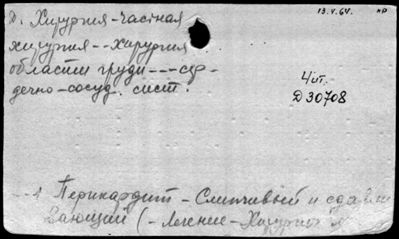 д. Хирургия-частная
хирургия--Хирургия
области груди---сер-
дечно-сосуд. сист.
13.V.64.
Чит.
Д30708
Перикардит - Слипчивый и сдавли
вающий (-лечение-Хирургия